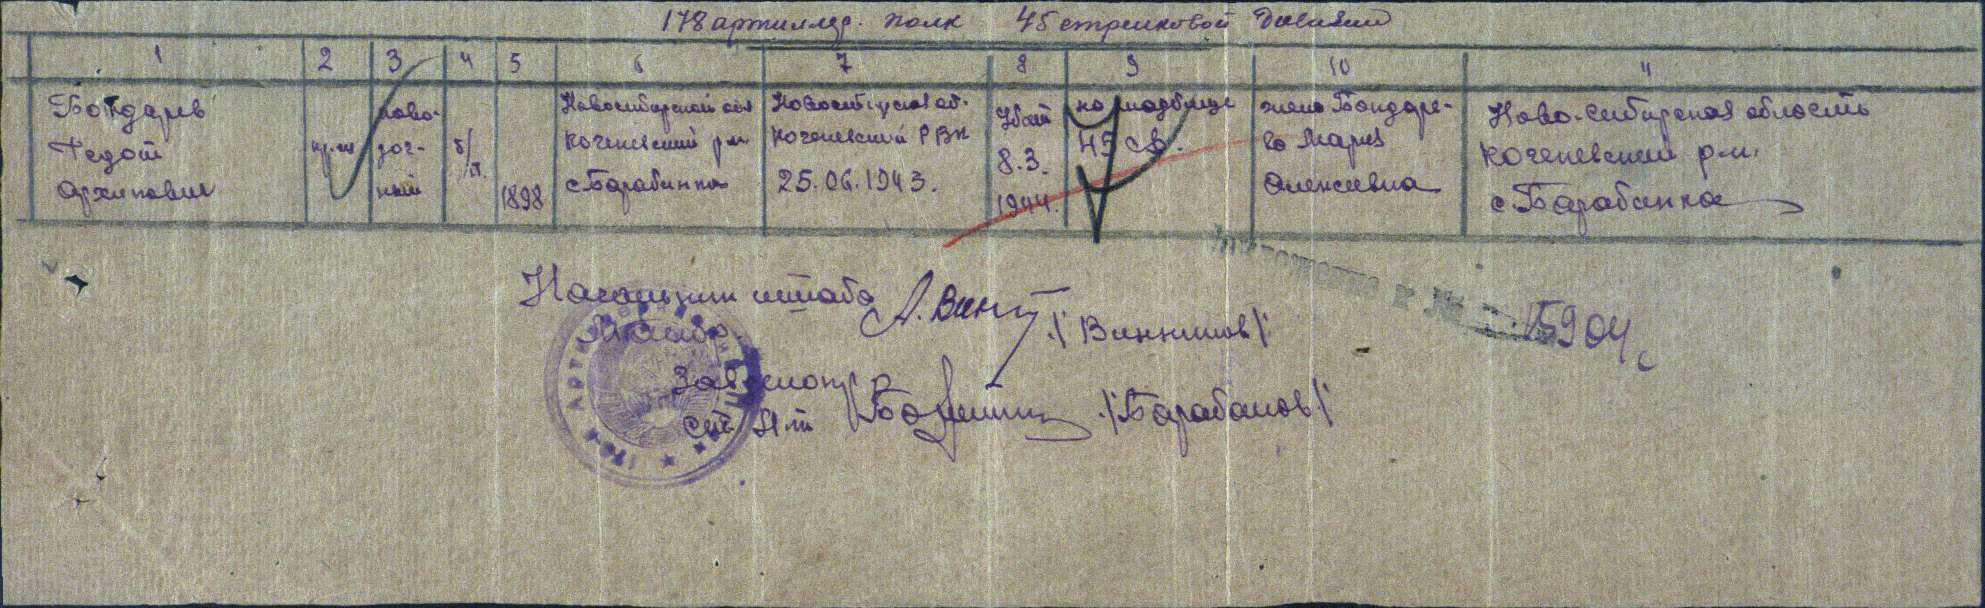 178 артиллер. полк 45 стрелковой дивизии
1 2 3 4 5 6 7 8 9 10 11
Бондарев
Федот
Архипович
кр-ц
пово-
зоч-
ный
б/п.
1898
Новосибирской обл
Коченевский р-н
с. Барабинка
Новосибирская об.
Коченевский РВК
25.06.1943.
Убит
8.3.
1944.
на кладбище
45 с.д.
жена Бондаре-
ва Мария
Алексеевна
Ново-Сибирская область
Коченевский р-н.
с. Барабинка
Начальник штаба
А. Винн
/Винников/
Майор
Зав.
/Барабанов/
15904с